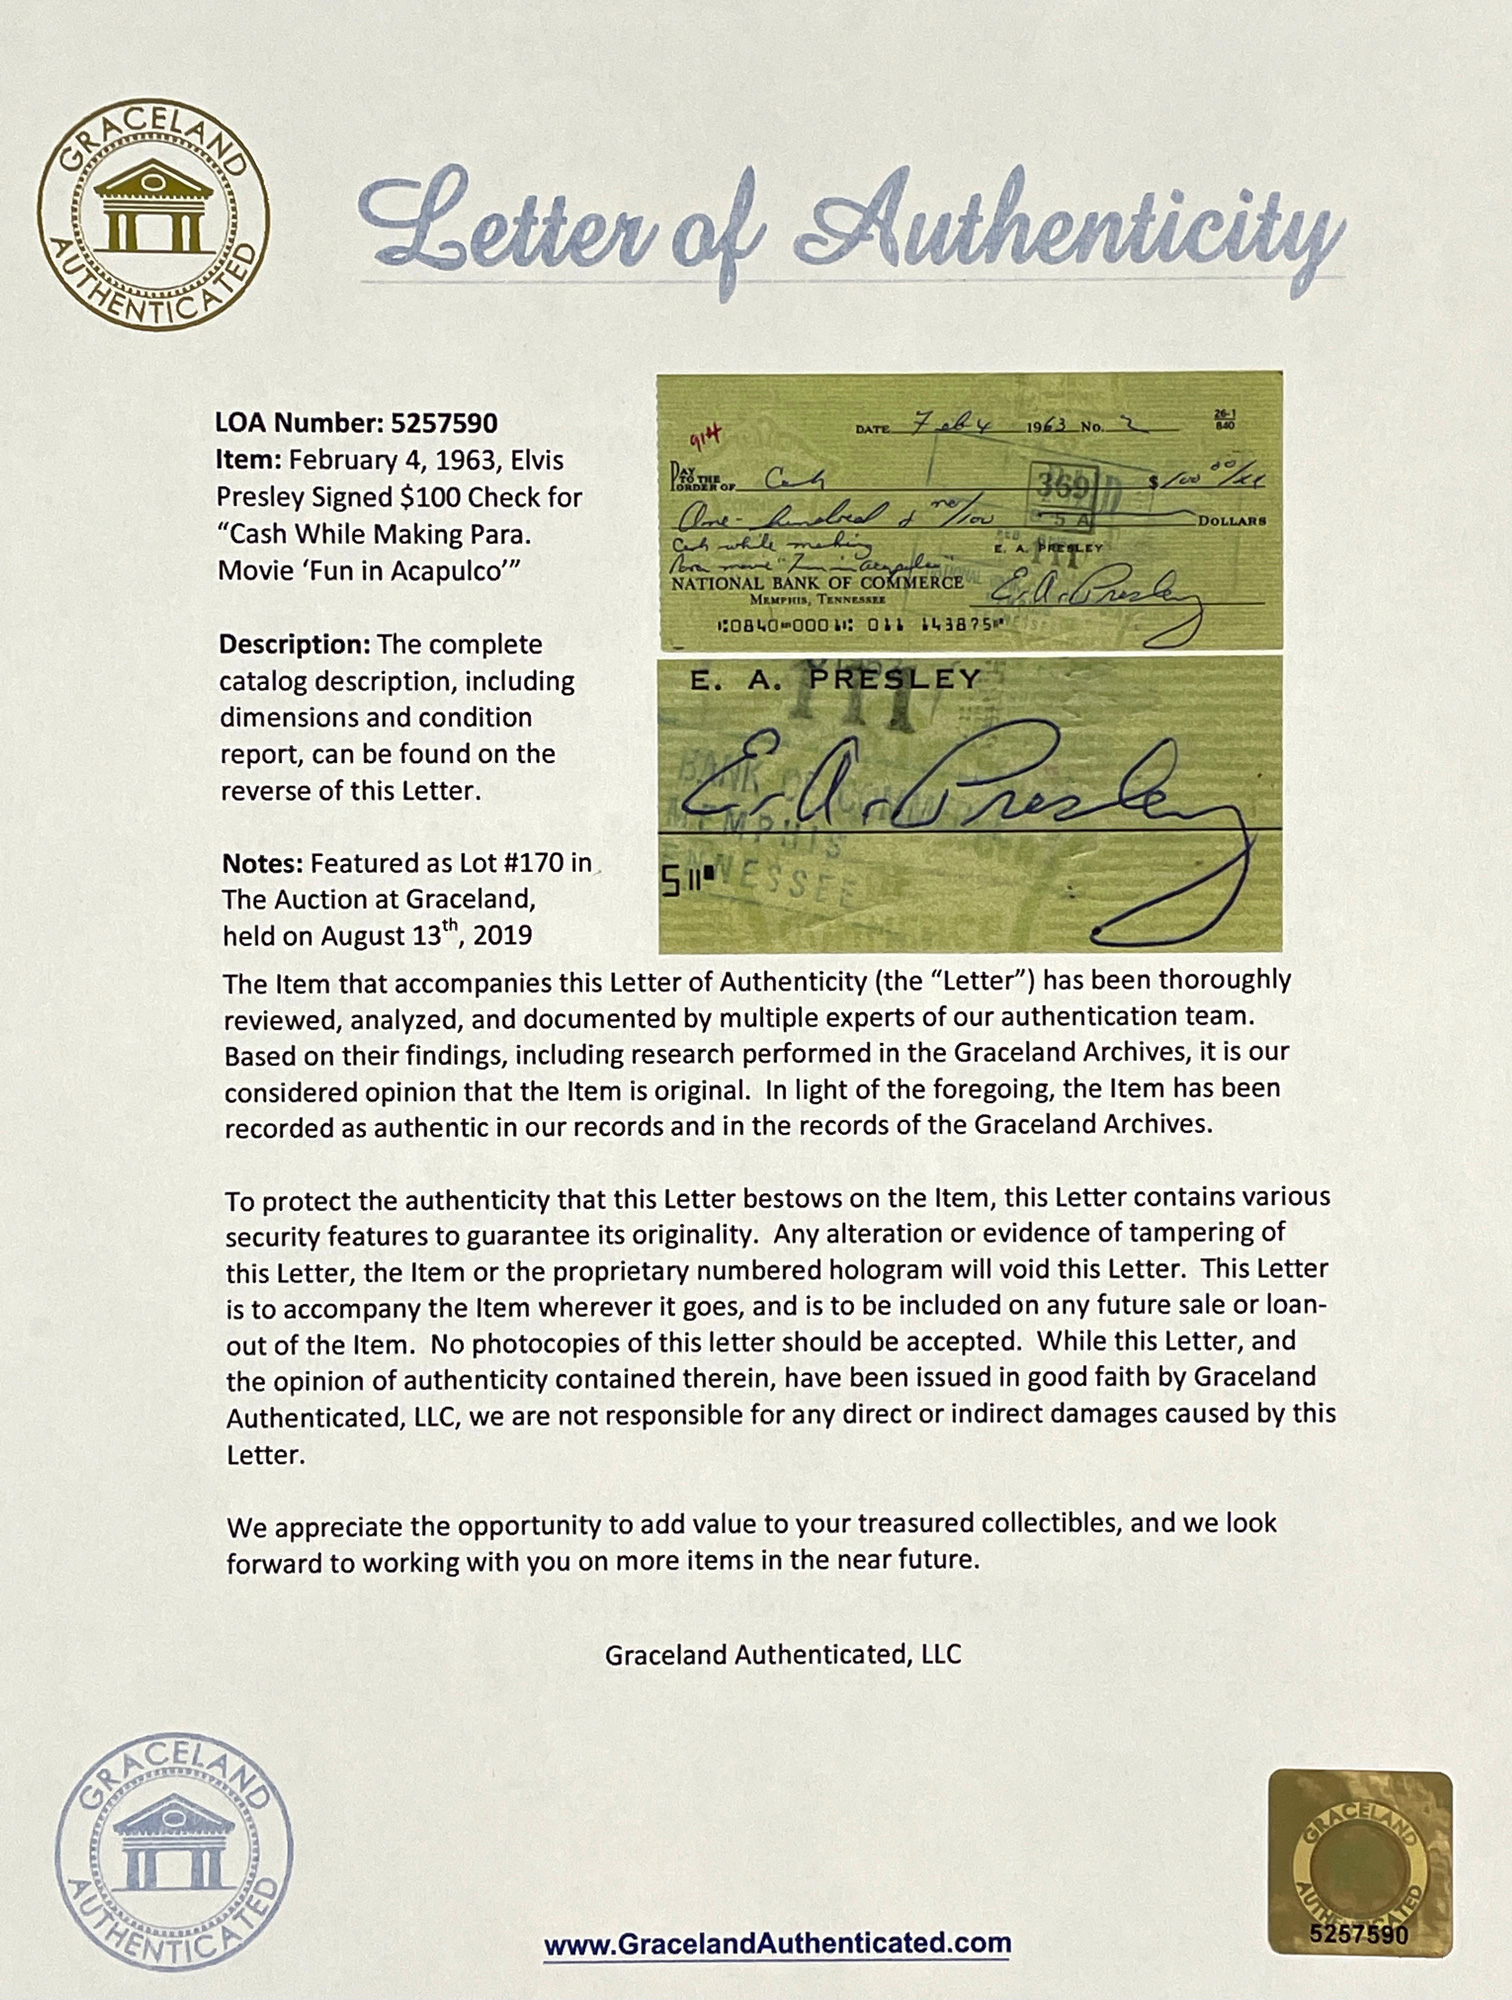 GRACELAND
AUTHENTICATED
Letter of Authenticity
LOA Number: 5257590
Item: February 4, 1963, Elvis
Presley Signed $100 Check for
“Cash While Making Para.
Movie ‘Fun in Acapulco’”
Description: The complete
catalog description, including
dimensions and condition
report, can be found on the
reverse of this Letter.
Notes: Featured as Lot #170 in
The Auction at Graceland,
held on August 13th, 2019
DATE Feb 4 1963 No. 2
26-1
840
PAY
TO THE
ORDER OF Cash $100 00/xx
369
One-hundred & no/100 DOLLARS
5 A
Cash while making
Para movie "Fun in Acapulco"
E. A. PRESLEY
NATIONAL BANK OF COMMERCE
MEMPHIS, TENNESSEE
E. A. Presley
⑆0840⑉0001⑆ 011 143875⑈
E. A. PRESLEY
E. A. Presley
BANK OF COMMERCE
MEMPHIS
ENNESSEE
5⑈
The Item that accompanies this Letter of Authenticity (the “Letter”) has been thoroughly
reviewed, analyzed, and documented by multiple experts of our authentication team.
Based on their findings, including research performed in the Graceland Archives, it is our
considered opinion that the Item is original.  In light of the foregoing, the Item has been
recorded as authentic in our records and in the records of the Graceland Archives.
To protect the authenticity that this Letter bestows on the Item, this Letter contains various
security features to guarantee its originality.  Any alteration or evidence of tampering of
this Letter, the Item or the proprietary numbered hologram will void this Letter.  This Letter
is to accompany the Item wherever it goes, and is to be included on any future sale or loan-
out of the Item.  No photocopies of this letter should be accepted.  While this Letter, and
the opinion of authenticity contained therein, have been issued in good faith by Graceland
Authenticated, LLC, we are not responsible for any direct or indirect damages caused by this
Letter.
We appreciate the opportunity to add value to your treasured collectibles, and we look
forward to working with you on more items in the near future.
Graceland Authenticated, LLC
GRACELAND
AUTHENTICATED
www.GracelandAuthenticated.com
GRACELAND
AUTHENTICATED
5257590